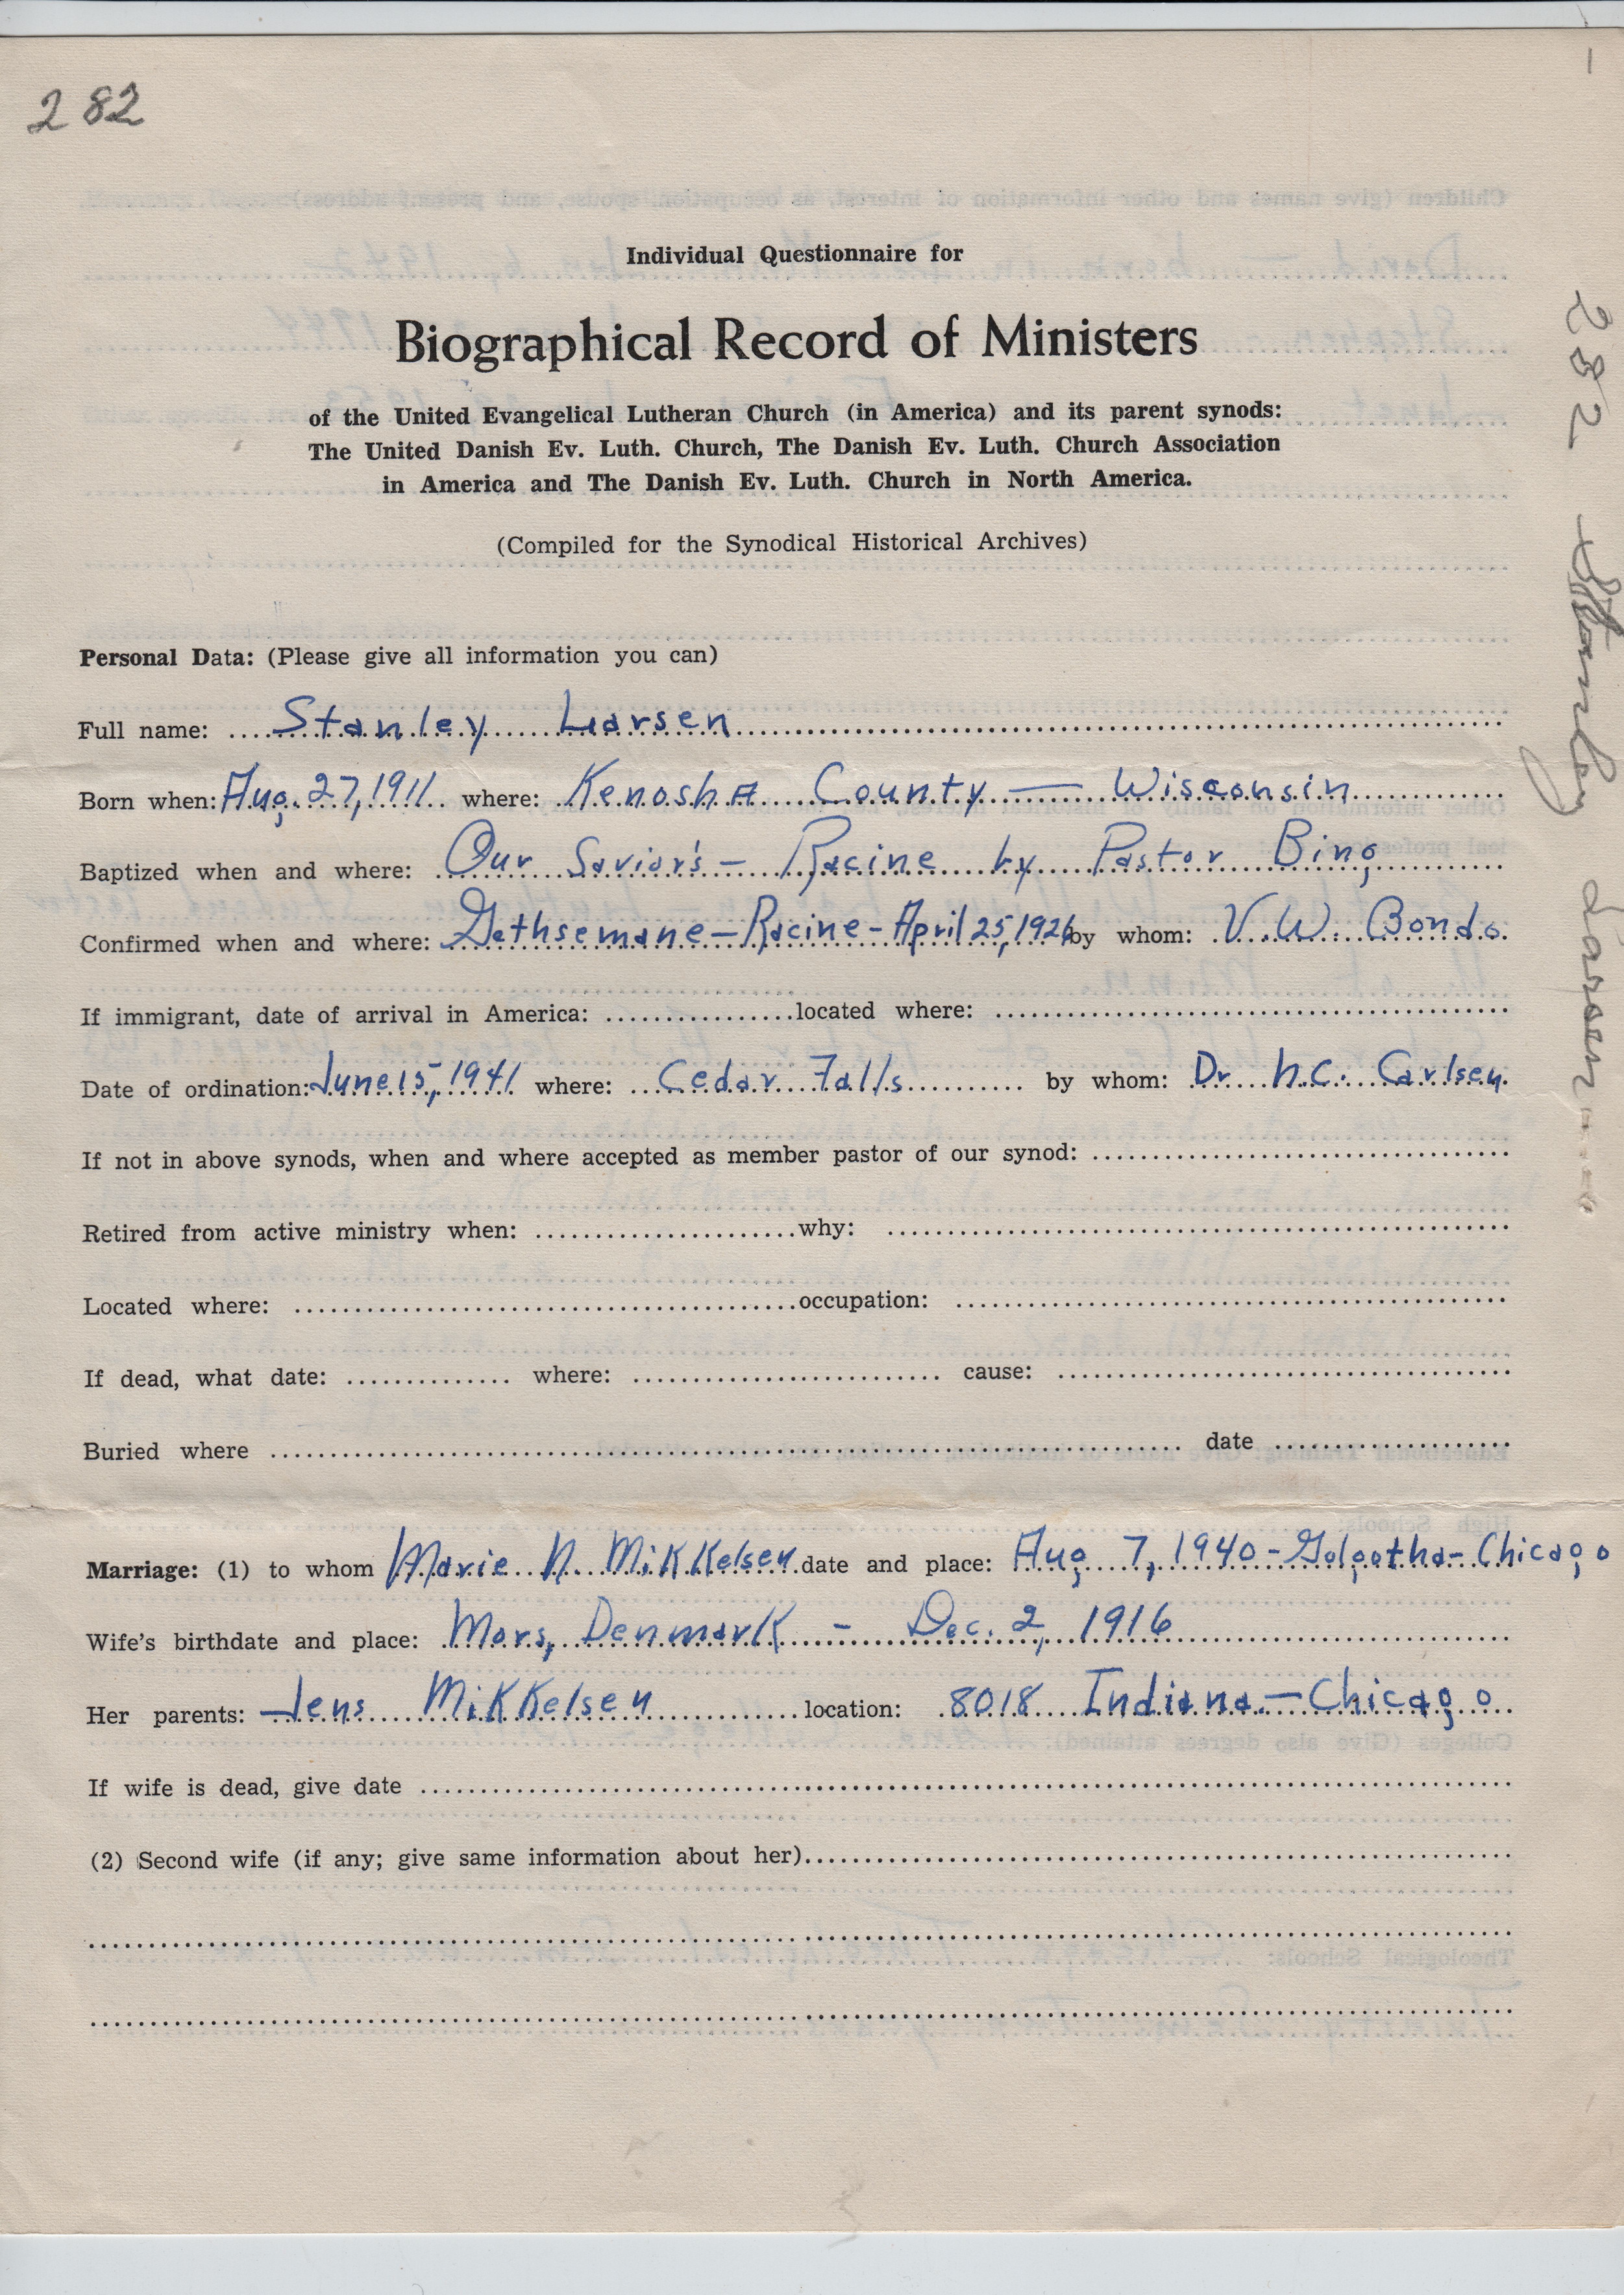 282
Individual Questionnaire for
Biographical Record of Ministers
of the United Evangelical Lutheran Church (in America) and its parent synods:
The United Danish Ev. Luth. Church, The Danish Ev. Luth. Church Association
in America and The Danish Ev. Luth. Church in North America.
(Compiled for the Synodical Historical Archives)
Personal Data: (Please give all information you can)
Full name: Stanley Larsen
Born when: Aug. 27, 1911 where: Kenosha County — Wisconsin
Baptized when and where: Our Savior's — Racine by Pastor Bing
Confirmed when and where: Gethsemane — Racine - April 25, 1926 by whom: V. W. Bondo
If immigrant, date of arrival in America: located where:
Date of ordination: June 15, 1941 where: Cedar Falls by whom: Dr N.C. Carlsen
If not in above synods, when and where accepted as member pastor of our synod:
Retired from active ministry when: why:
Located where: occupation:
If dead, what date: where: cause:
Buried where date
Marriage: (1) to whom Marie N. Mikkelsen date and place: Aug 7, 1940 - Golgotha - Chicago
Wife's birthdate and place: Mors, Denmark - Dec. 2, 1916
Her parents: Jens Mikkelsen location: 8018 Indiana — Chicago
If wife is dead, give date
(2) Second wife (if any; give same information about her)
282 Stanley Larsen